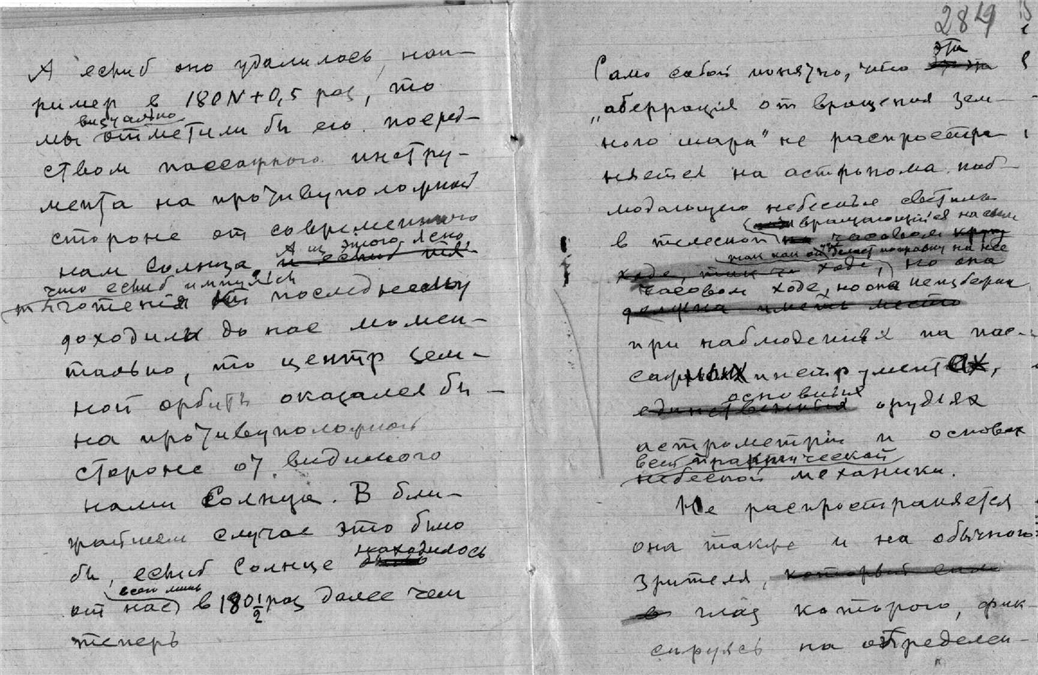 А еслиб оно удалилось, нап-
ример в 180N+0,5 раз, то
визуально
мы отметили бы его посред-
ством пассажного инстру-
мента на противуположной
стороне от современного
нам Солнца. А из этого ясно
что еслиб импульсы
тяготения последнему
доходили до нас момен-
тально, то центр зем-
ной орбиты оказался бы
на противуположной
стороне от видимого
нами Солнца. В бли-
жайшем случае это было
бы, еслиб Солнце находилось
всего лишь
от нас в 180 1/2 раз далее чем
теперь
284
Само собой понятно, что эта
„аберрация от вращения зем-
ного шара" не распростра-
няется на астронома наб-
людающего небесные светила
в телескоп вращающийся на своем
так как он делает поправку на нее
часовом ходе, но она неизбежна
при наблюдениях на пас-
сажных инструментах,
основных
орудиях
астрометрии и основах
всей практической
небесной механики.
Не распространяется
она также и на обычного
зрителя,
глаз которого, фик-
сируясь на определен-